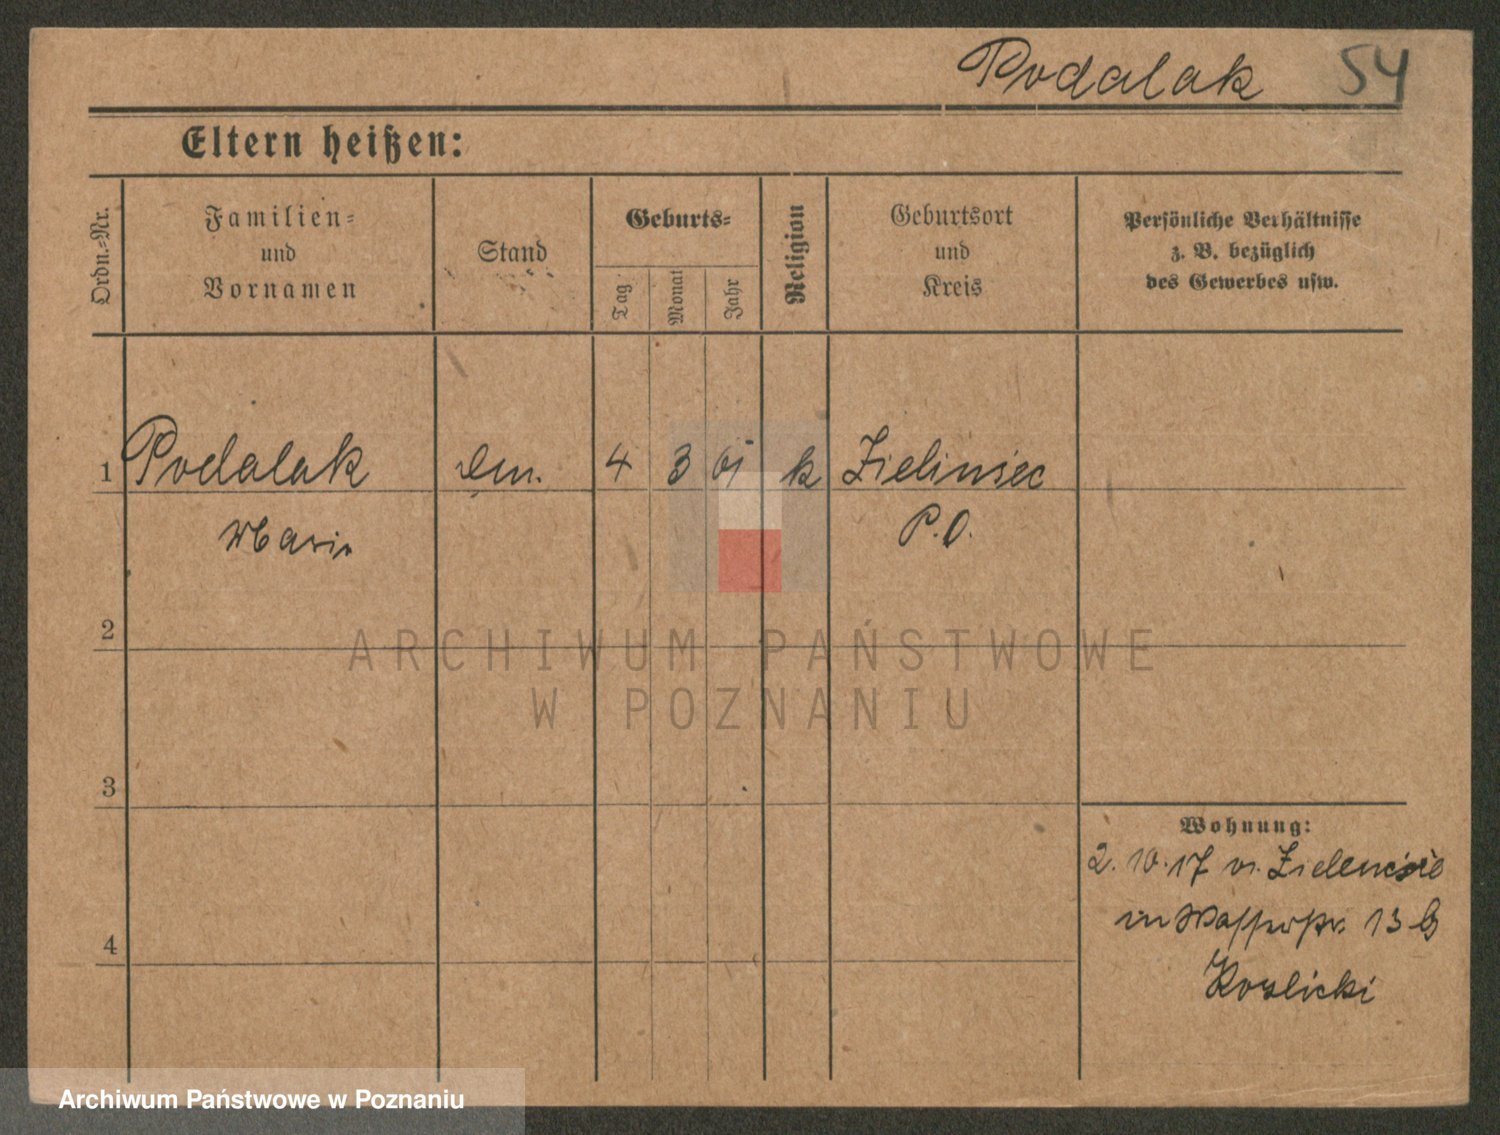 Podalak 54
Eltern heißen:
Ordn.=Nr.
Familien=
und
Vornamen
Stand
Geburts=
Tag
Monat
Jahr
Religion
Geburtsort
und
Kreis
Persönliche Verhältnisse
z. B. bezüglich
des Gewerbes usw.
1 Podalak 4 3 k Zieliniec
Maria P. O.
2
3
4
Wohnung:
2. 10. 17 v.
in Wasserstr. 13 b
Kozlicki
ARCHIWUM PAŃSTWOWE
W POZNANIU
Archiwum Państwowe w Poznaniu